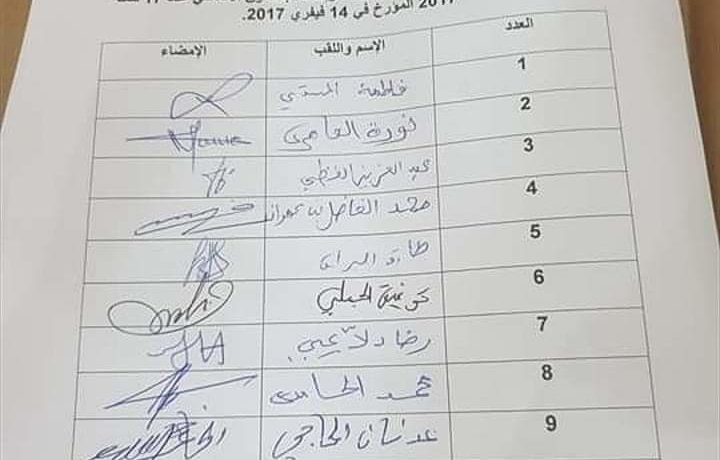 2017 المؤرخ في 14 فيفري 2017.
العدد الاسم واللقب الإمضاء
1 فاطمة المسدي
2 نورة العامري
3 عبد العزيز القطي
4 محمد الفاضل بن عمران
5 طارق البراق
6 توفيق الجملي
7 رضا دلاعي
8 محمد الحامدي
9 عدنان الحاجي